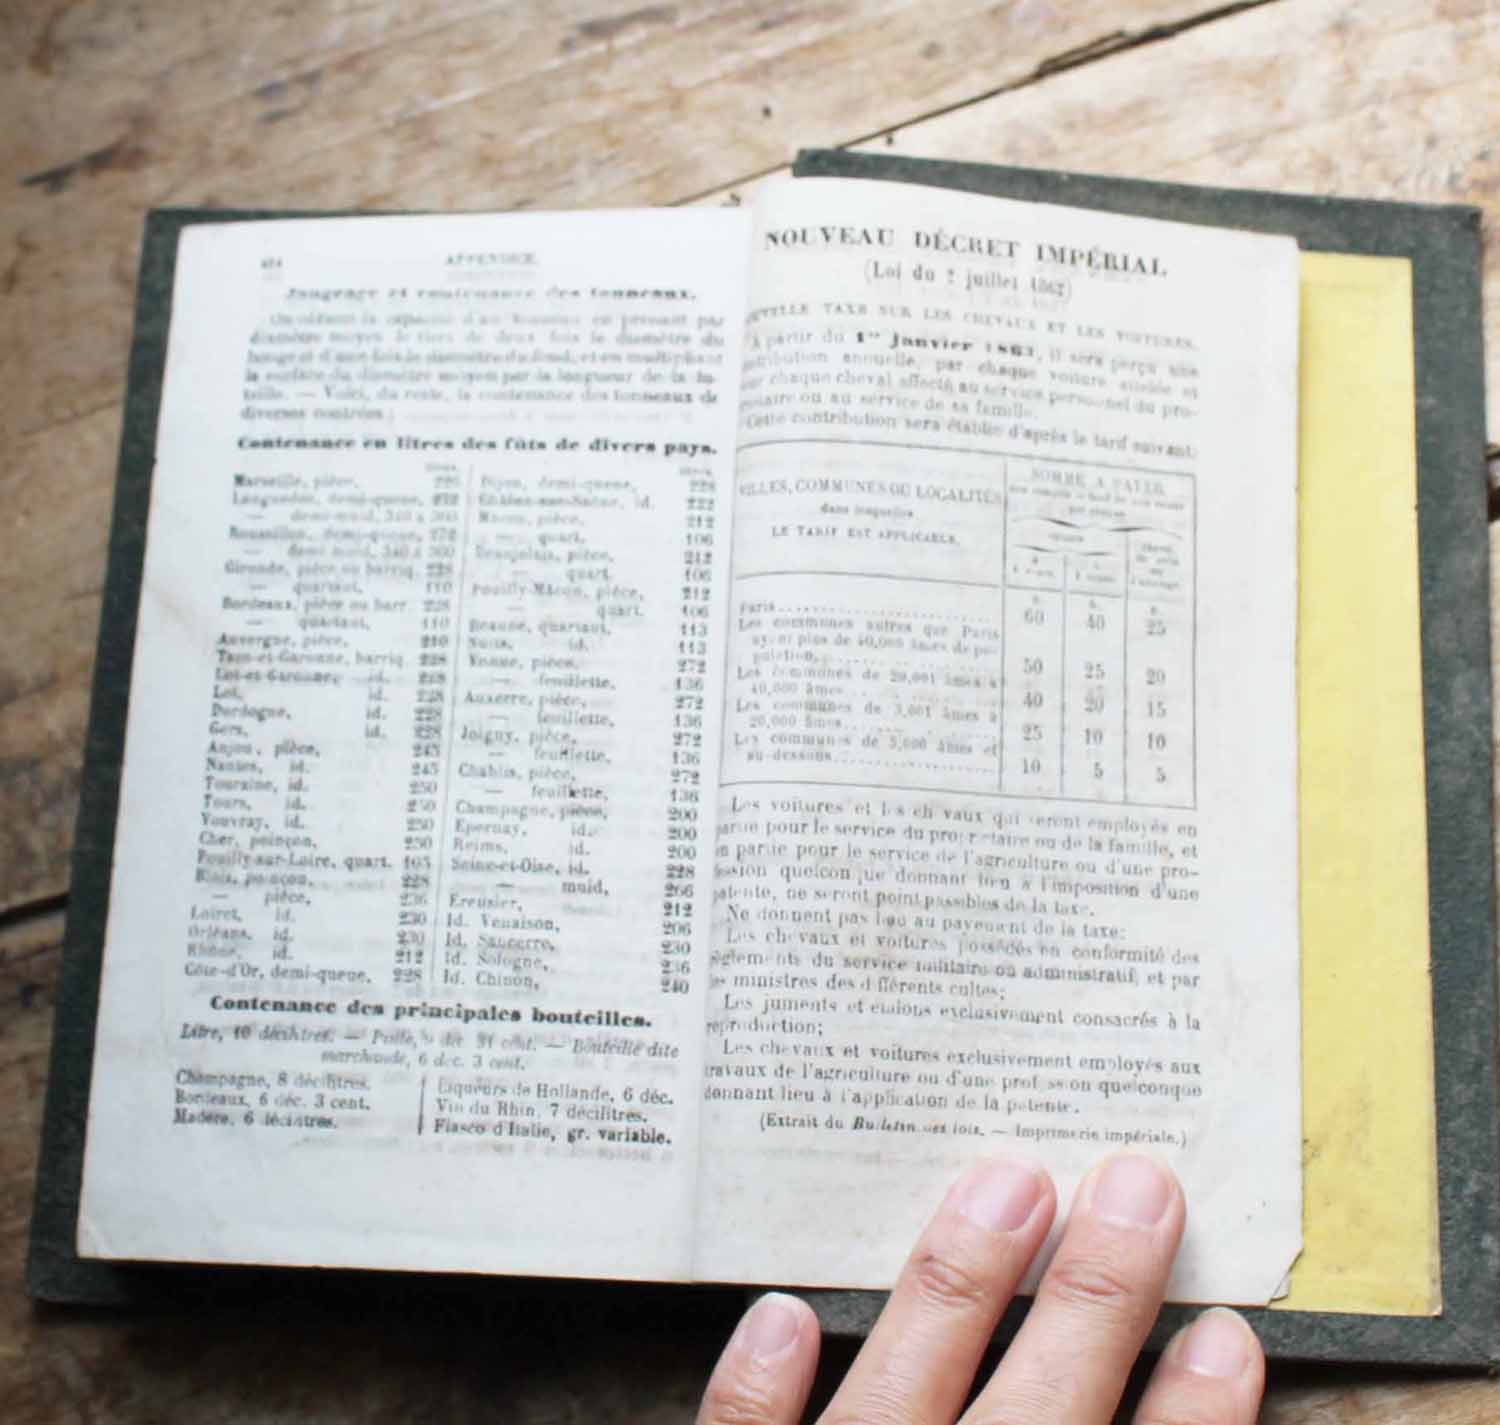 APPENDICE.
Jaugeage et contenance des tonneaux.
On obtient la capacité d'un tonneau en prenant par
diamètre moyen le tiers de deux fois le diamètre du
bouge et d'une fois le diamètre du fond, et en multipliant
la surface du diamètre moyen par la longueur de la fu-
taille. — Voici, du reste, la contenance des tonneaux de
diverses contrées :
Contenance en litres des fûts de divers pays.
Marseille, pièce,
Languedoc, demi-queue, 272
— demi-muid,
Roussillon, demi-queue, 272
— demi-muid, 340 à 360
Gironde, pièce ou barriq. 228
— quartaut, 110
Bordeaux, pièce ou barr. 228
— quartaut, 110
Auvergne, pièce, 210
Tarn-et-Garonne, barriq. 228
Lot-et-Garonne, id. 228
Lot, id. 228
Dordogne, id. 228
Gers, id. 228
Anjou, pièce, 245
Nantes, id. 245
Touraine, id. 250
Tours, id. 250
Vouvray, id. 250
Cher, poinçon, 250
Pouilly-sur-Loire, quart.
Blois, poinçon, 228
— pièce, 236
Loiret, id. 230
Orléans, id. 230
Rhône, id. 212
Côte-d'Or, demi-queue, 228
Dijon, demi-queue, 228
Châlon-sur-Saône, id.
Macon, pièce, 212
— quart. 106
Beaujolais, pièce, 212
— quart. 106
Pouilly-Mâcon, pièce, 212
— quart. 106
Beaune, quartaut, 113
Nuits, id. 113
Yonne, pièce, 272
— feuillette, 136
Auxerre, pièce, 272
— feuillette, 136
Joigny, pièce, 272
— feuillette, 136
Chablis, pièce, 272
— feuillette, 136
Champagne, pièce, 200
Epernay, id. 200
Reims, id. 200
Seine-et-Oise, id. 228
— muid, 266
Ereusier, 212
Id. Venaison, 206
Id. Sancerre, 230
Id. Sologne, 236
Id. Chinon, 240
Contenance des principales bouteilles.
Litre, 10 décilitres. — — Bouteille dite
marchande, 6 déc. 3 cent.
Champagne, 8 décilitres.
Bordeaux, 6 déc. 3 cent.
Madère, 6 décilitres.
Liqueurs de Hollande, 6 déc.
Vin du Rhin, 7 décilitres.
Fiasco d'Italie, gr. variable.
NOUVEAU DÉCRET IMPÉRIAL
(Loi du 2 juillet 1862)
TAXE SUR LES CHEVAUX ET LES VOITURES.
A partir du 1er janvier 1863, il sera perçu une
tribution annuelle, par chaque voiture attelée et
ur chaque cheval affecté au service personnel du pro-
riétaire ou au service de sa famille.
Cette contribution sera établie d'après le tarif suivant:
VILLES, COMMUNES OU LOCALITÉS
dans lesquelles
LE TARIF EST APPLICABLE.
SOMME A PAYER
Paris 60 40 25
Les communes autres que Paris
ayant plus de 40,000 âmes de po-
pulation 50 25 20
Les communes de 20,001 âmes à
40,000 âmes 40 20 15
Les communes de 3,001 âmes à
20,000 âmes 25 10 10
Les communes de 3,000 âmes et
au-dessous 10 5 5
Les voitures et les chevaux qui seront employés en
partie pour le service du propriétaire ou de la famille, et
en partie pour le service de l'agriculture ou d'une pro-
fession quelconque donnant lieu à l'imposition d'une
patente, ne seront point passibles de la taxe.
Ne donnent pas lieu au payement de la taxe:
Les chevaux et voitures possédés en conformité des
règlements du service militaire ou administratif, et par
les ministres des différents cultes;
Les juments et étalons exclusivement consacrés à la
reproduction;
Les chevaux et voitures exclusivement employés aux
travaux de l'agriculture ou d'une profession quelconque
donnant lieu à l'application de la patente.
(Extrait du Bulletin des lois. — Imprimerie impériale.)